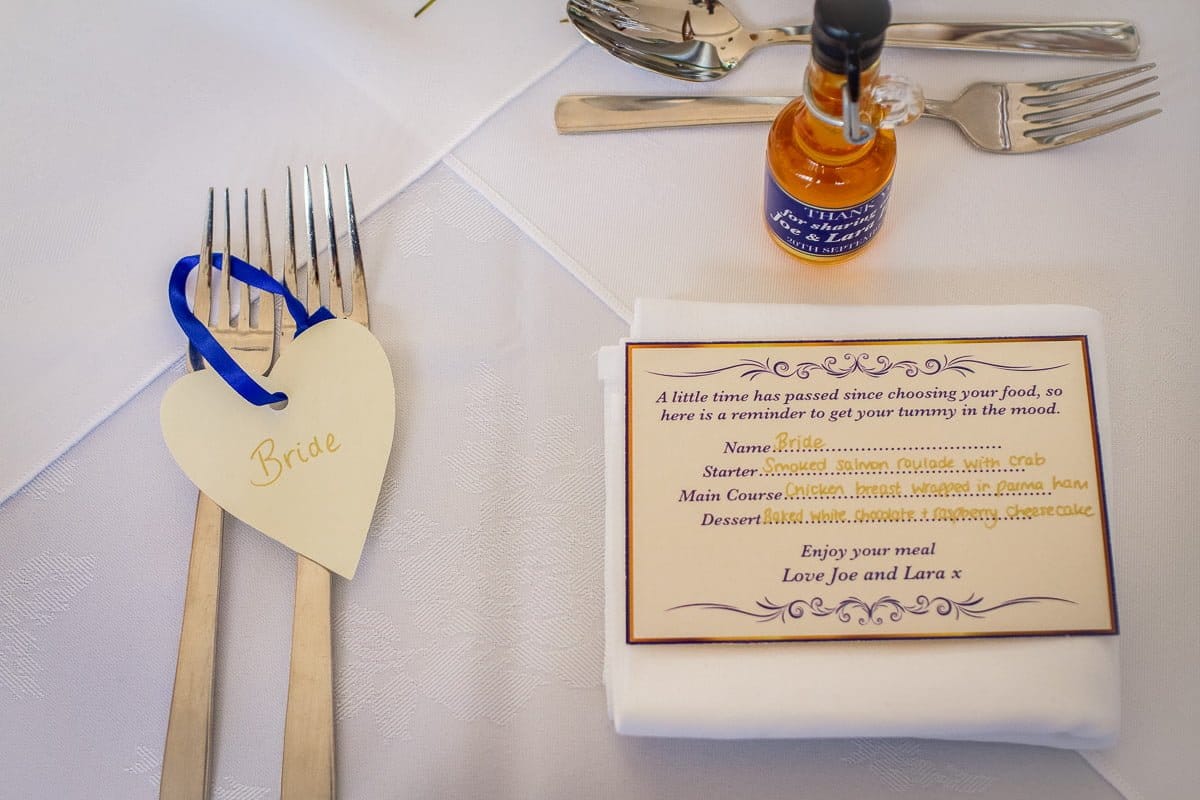 THANK
for sharing
Joe & Lara
20TH SEPTEMBER
Bride
A little time has passed since choosing your food, so
here is a reminder to get your tummy in the mood.
Name Bride
Starter Smoked salmon roulade with crab
Main Course Chicken breast wrapped in parma ham
Dessert Baked white chocolate + raspberry cheesecake
Enjoy your meal
Love Joe and Lara x